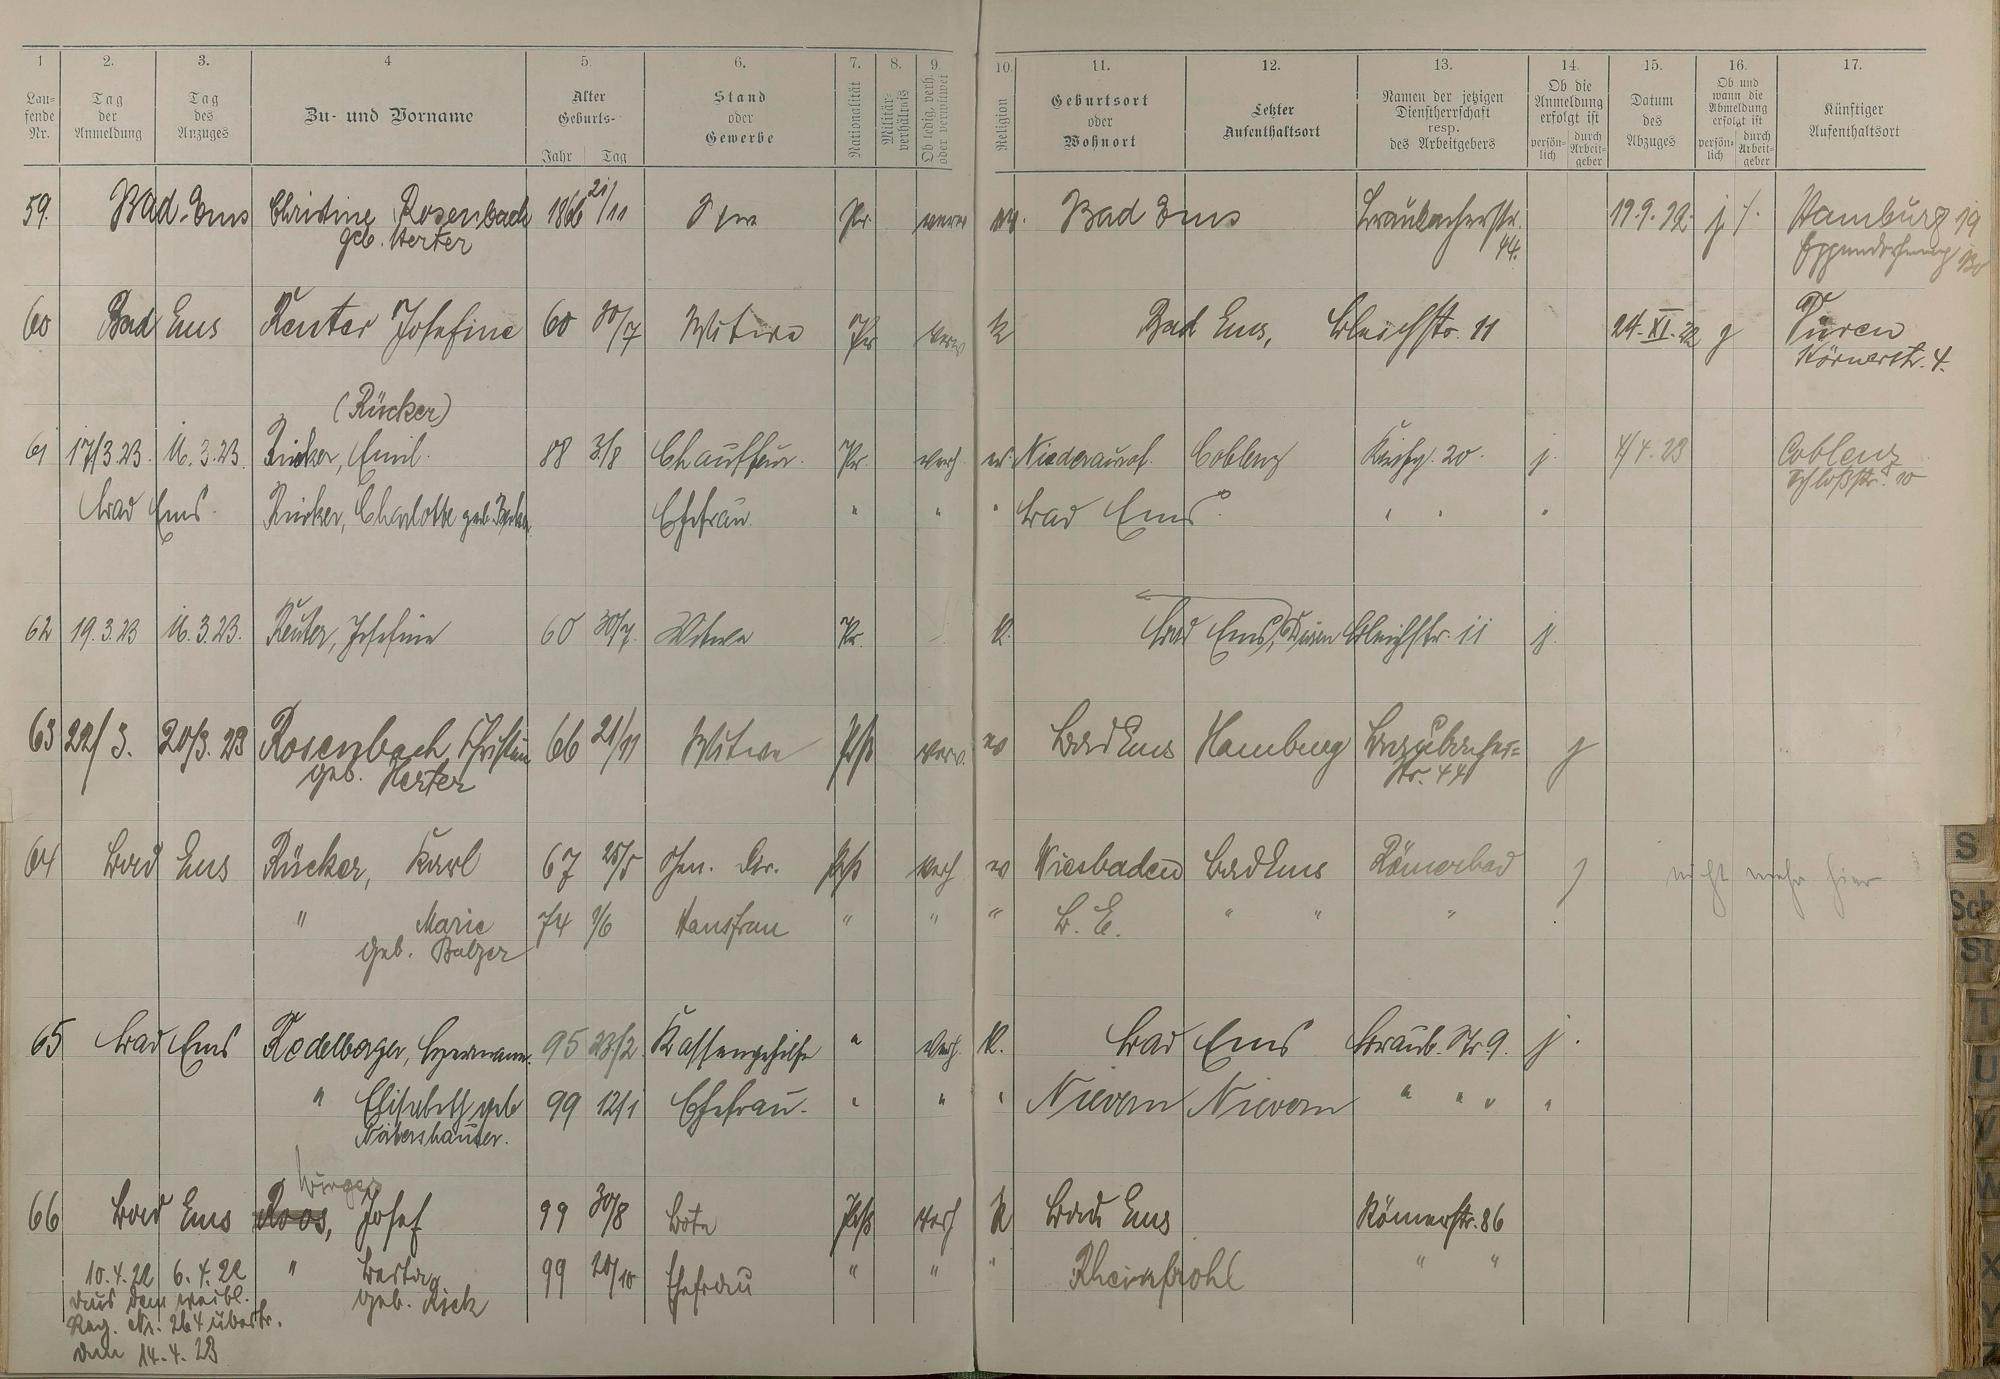 1 2. 3. 4 5. 6. 7. 8. 9. 10. 11. 12. 13. 14. 15. 16. 17.
Lau-
fende
Nr.
Tag
der
Anmeldung
Tag
des
Anzuges
Zu- und Vorname
Alter
Geburts-
Jahr Tag
Stand
oder
Gewerbe
Nationalität
Militär-
verhältnis
Ob ledig, verh.
oder verwitwet
Religion
Geburtsort
oder
Wohnort
Letzter
Aufenthaltsort
Namen der jetzigen
Dienstherrschaft
resp.
des Arbeitgebers
Ob die
Anmeldung
erfolgt ist
persön-
lich
durch
Arbeit-
geber
Datum
des
Abzuges
Ob und
wann die
Abmeldung
erfolgt ist
persön-
lich
durch
Arbeit-
geber
Künftiger
Aufenthaltsort
59. Bad-Ems Christine Rosenbach 1866 21/11 Pr. ev. Bad Ems Braubacherstr. 19.9.22. j Hamburg 19
geb. Herter 44.
60 Bad Ems Reuter Josefine 60 30/7 Witwe Pr verw K Bad Ems, Bleichstr. 11 24.XI.22 j Düren
Körnerstr. 4.
(Rücker)
61 17/3.23. 16.3.23. Rücker, Emil. 88 3/8 Chauffeur. Pr. verh. ev. Niederaurof. Coblenz Kirchg. 20. j. 4/4.23 Coblenz
Schloßstr. 10
Bad Ems. Rücker, Charlotte geb. Ehefrau " " " Bad Ems " " "
62 19.3.23 16.3.23. Reuter, Josefine 60 30/7. Witwe Pr. K. Bad Ems, Düren Bleichstr. 11 j.
63 22/3. 20/3.23 Rosenbach, Christine 66 21/11 Witwe Prß verw. ev Bad Ems Hamburg Braubacher=
geb. Herter str. 44 j
64 Bad Ems Rücker, Karl 67 25/5 Dir. Prß verh ev Wiesbaden Bad Ems Römerbad j nicht mehr hier
" Marie 74 9/6 Hausfrau " " " B. E. " " "
geb. Balzer
65 Bad Ems Rodelberger, Hermann. 95 23/2 Kassengehilfe " verh. K. Bad Ems Braub. Str. 9. j.
" Elisabeth geb 99 12/1 Ehefrau. " " " Nievern Nievern " " " "
Nörtershäuser.
66 Bad Ems Roos, Josef 99 30/8 Bote Prß verh K Bad Ems Römerstr. 86
10.4.22 6.4.22 " Berta 99 20/10 Ehefrau " " " Rheinbrohl " "
geb. Rick
aus dem weibl.
Reg. Nr. 264 übertr.
den 14.4.23
S
Sch
St
T
U
V
W
X
Y
Z